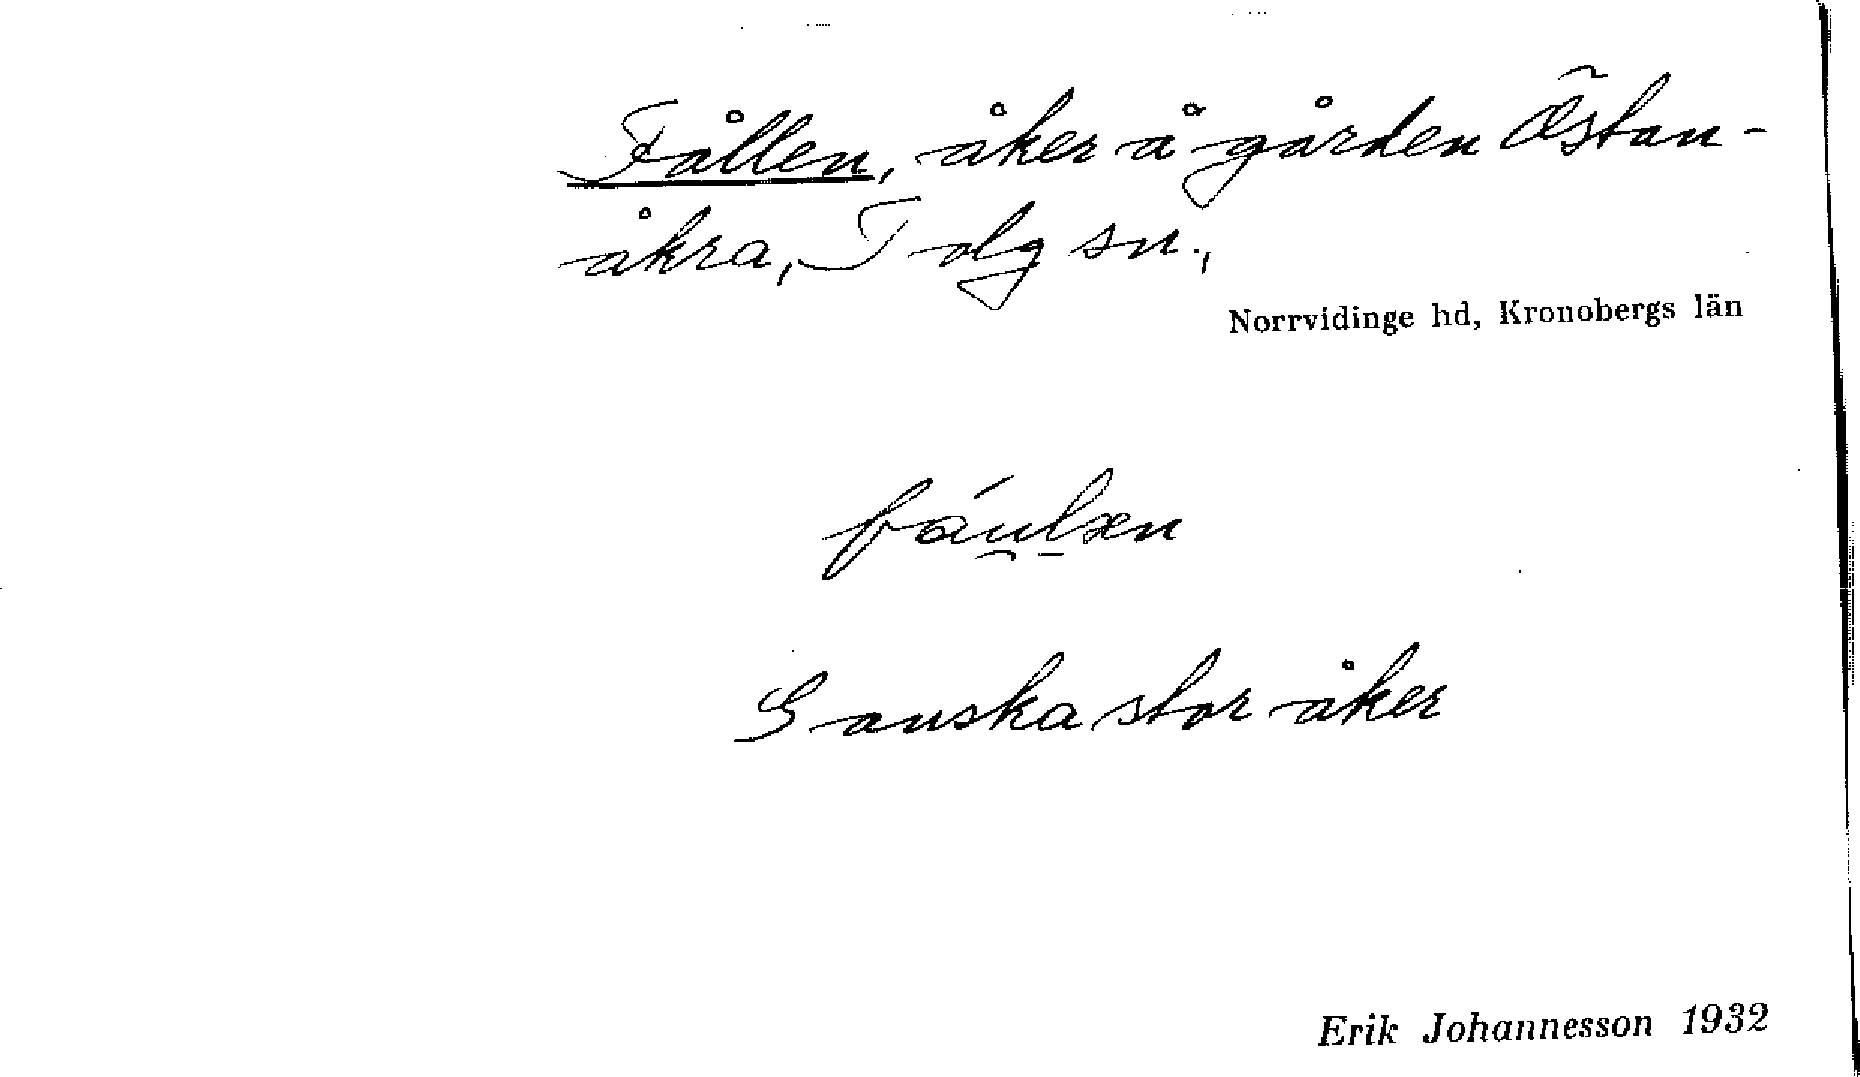 Fållen, åker å gården Östan-
åkra, Tolg sn.,
Norrvidinge hd, Kronobergs län
fáu̯l̠ən
Ganska stor åker
Erik Johannesson 1932